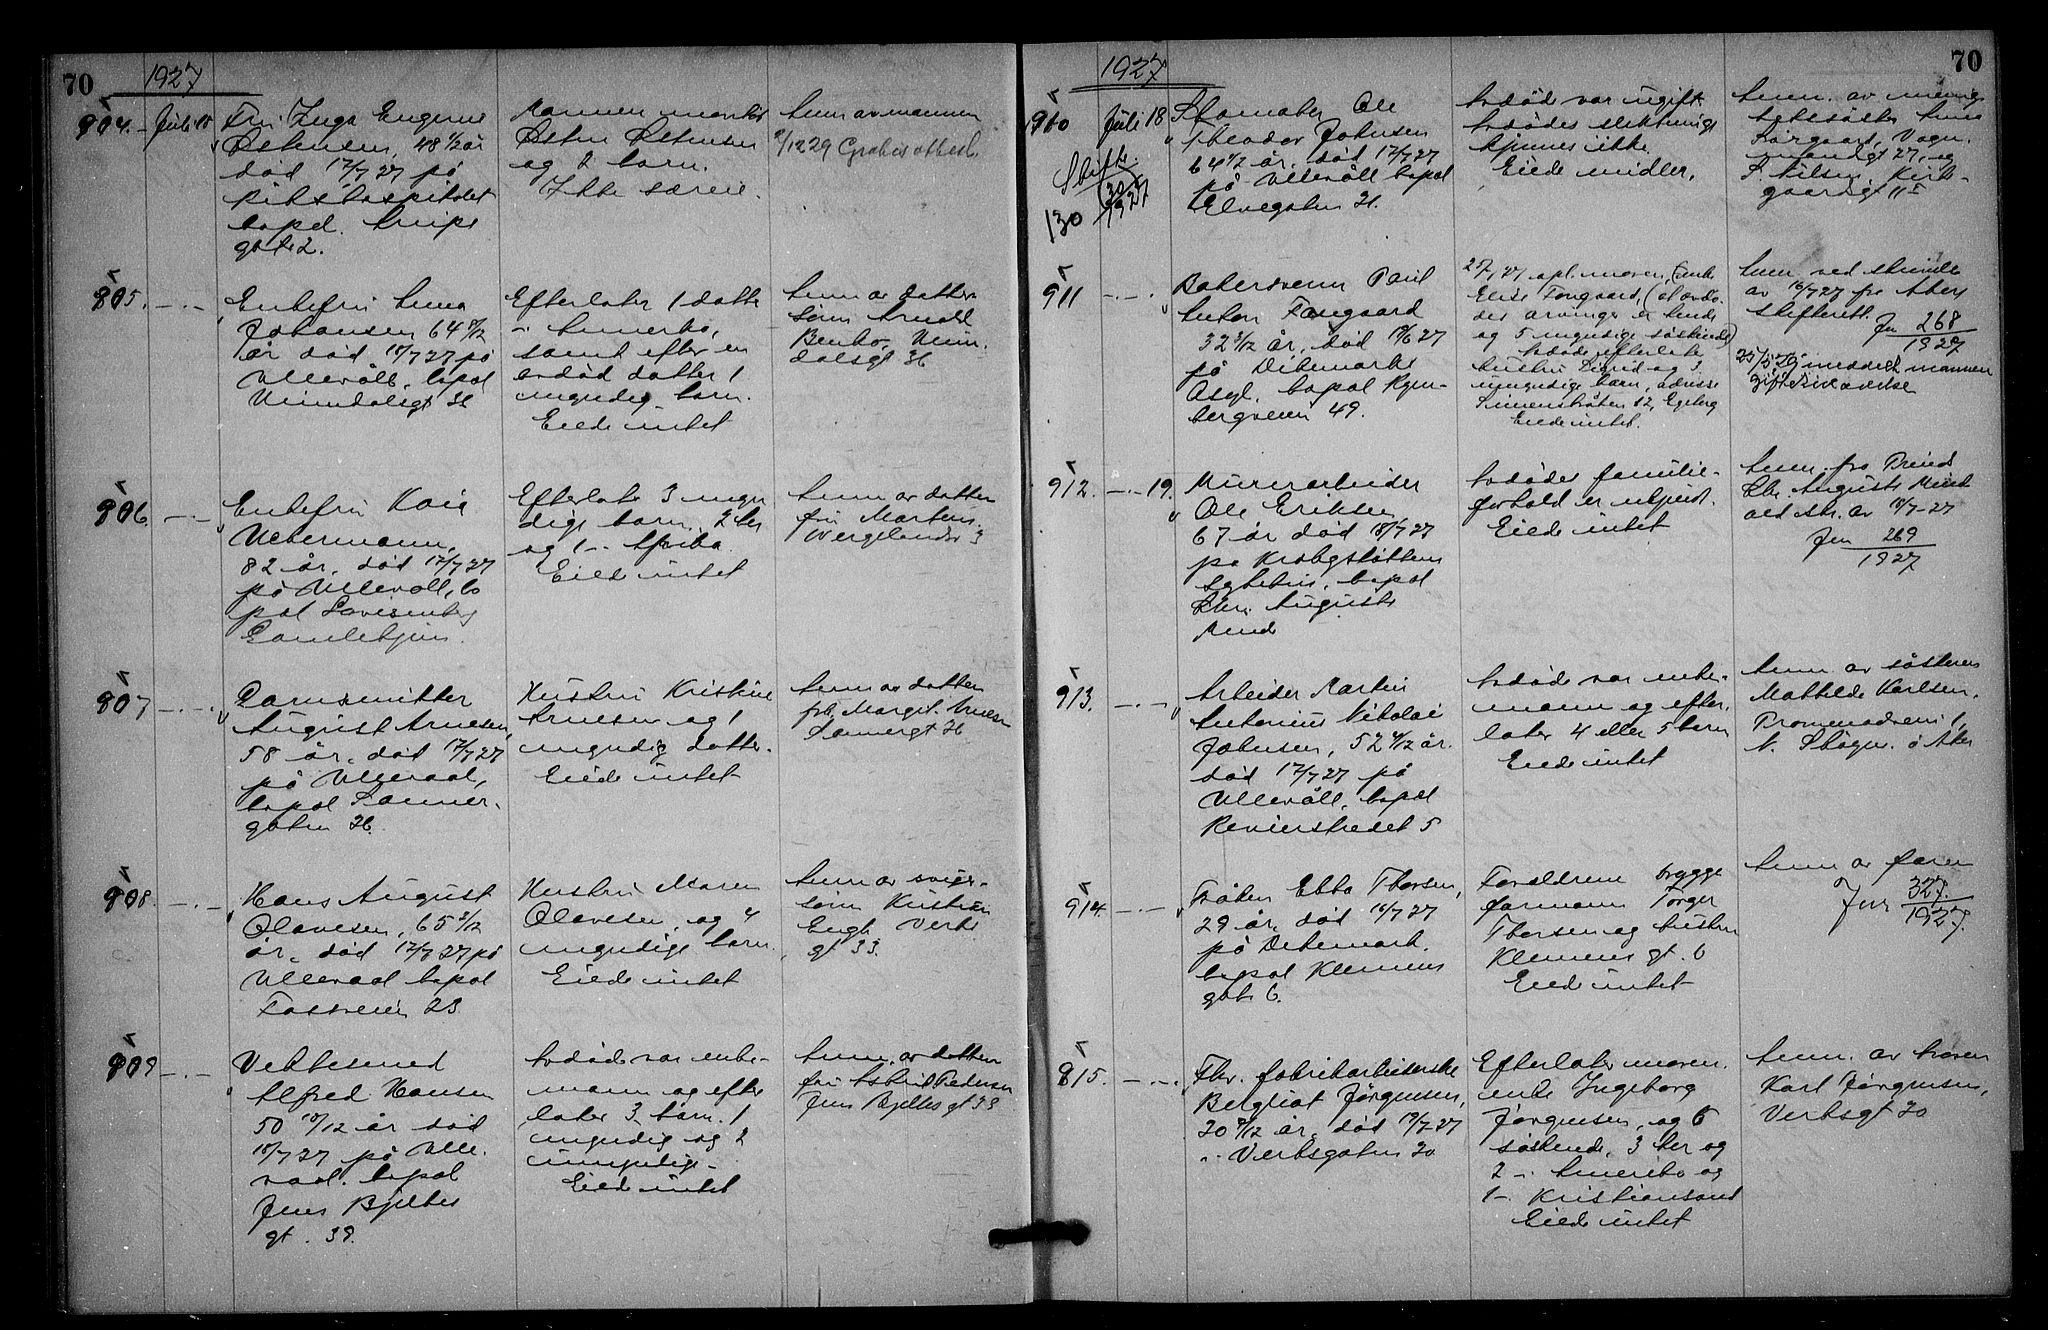 70
1927
904. Juli 18
Fru Inga Eugenie
Østensen, 48 1/2 år
død 17/7 27 på
Rikshospitalet
bopl.
gate 2.
Mannen montør
Østen Østensen
og 2 barn.
Ikke særeie.
Anm av mannen
9/12 29
905.
Enkefru Anna
Johansen 64 9/12
år død 17/7 27 på
Ullevåll, bopæl
Heimdalsgt 36
Efterlater 1 datter
i Amerika,
samt efter en
avdød datter 1
umyndig barn.
Eiede intet
Anm av datter-
sønn Arnold
Heim-
dalsgt 36
906.
Enkefru Kaia
Uebermann,
82 år, død 17/7 27
på Ullevåll, bo
pæl Lovisenberg
Gamlehjem.
Efterlater 3 myn
dige barn, 2 her
og 1 i Afrika
Eiede intet
Anm av datteren
fru Martens
907
August Arnesen,
58 år, død 17/7 27
på Ullevaal,
bopæl Sanner-
gaten 36.
Hustru Kristine
Arnesen og 1
myndig datter.
Eiede intet
Anm av datteren
frk. Margit Arnesen
Sannergt 36
908.
Hans August
Olavesen, 65 2/12
år, død 17/7 27 på
Ullevaal bopæl
Fossveien 23
Hustru Maren
Olavesen, og 4
myndige barn.
Eiede intet
Anm av sviger-
sønn Kristian
Engh Verks
gt 33.
909
Vektesmed
Alfred Hansen
50 10/12 år død
på Ulle-
vaal. bopæl
Jens Bjelkes
gt. 39.
Avdøde var enke-
mann og efter
later 3 barn. 1
myndig og 2
umyndige.
Eiede intet
Anm. av datteren
fru Astrid Pedersen
Jens Bjelkes gt 39
70
1927
910 Juli 18
Skifte
130
1927
Ole
Theodor Johnsen
64 1/2 år, død 17/7 27
på Ullevåll bopæl
Elvegaten 21.
Avdøde var ugift.
Avdødes slektninge
kjennes ikke.
Eiede midler.
Anm. av
27, og
Nilsen, Kirke-
gaardsgt 11 I
911
Bakersvenn Paul
Anton Fougaard
32 3/12 år, død
på Dikemarks
Asyl, bopæl Ryen-
bergveien 49.
moren, enke
Elise Fougaard,
og 5 myndige søskende)
Avdøde efterlater
hustru og 3
umyndige barn, adresse
12, Egeberg
Eiede intet.
Anm ved skrivelse
av 16/7 27 fra Akers
skifterett. Jnr 268
1927
mannen
912. 19.
Murerarbeider
Ole Eriksen
67 år død 18/7 27
på Krohgstøttens
sykehus, bopæl
Chr. Augusts
Minde
Avdødes familie-
forhold er ukjent.
Eiede intet
Anm. fra Prins
Chr. Augusts Minde
av 18/7-27
Jnr 269
1927
913.
Arbeider Martin
Antonius Nikolai
Johnsen, 52 4/12 år.
død 17/7 27 på
Ullevåll, bopæl
Revierstredet 5
Avdøde var enke-
mann og efter-
later 4 eller 5 barn
Eiede intet
Anm av søsteren
Mathilde Karlsen,
Promenadeveien 1,
N. Skøyen. Ø Aker
914.
Frøken Ebba Thorsen,
29 år, død 16/7 27
på Dikemark,
bopæl Klemens
gate 6.
Foreldrene brygge
formann Torger
Thorsen og hustru
Klemens gt. 6
Eiede intet
Anm av faren
Jnr 327
1927.
815.
Fhv. fabrikarbeiderske
Bergliot Jørgensen,
20 9/12 år, død 17/7 27
i Verksgaten 20
Efterlater moren,
enke Ingeborg
Jørgensen, og 6
søskende, 3 her og
2 i Amerika og
1 i Kristiansand
Eiede intet
Anm. av broren
Karl Jørgensen,
Verksgt 20